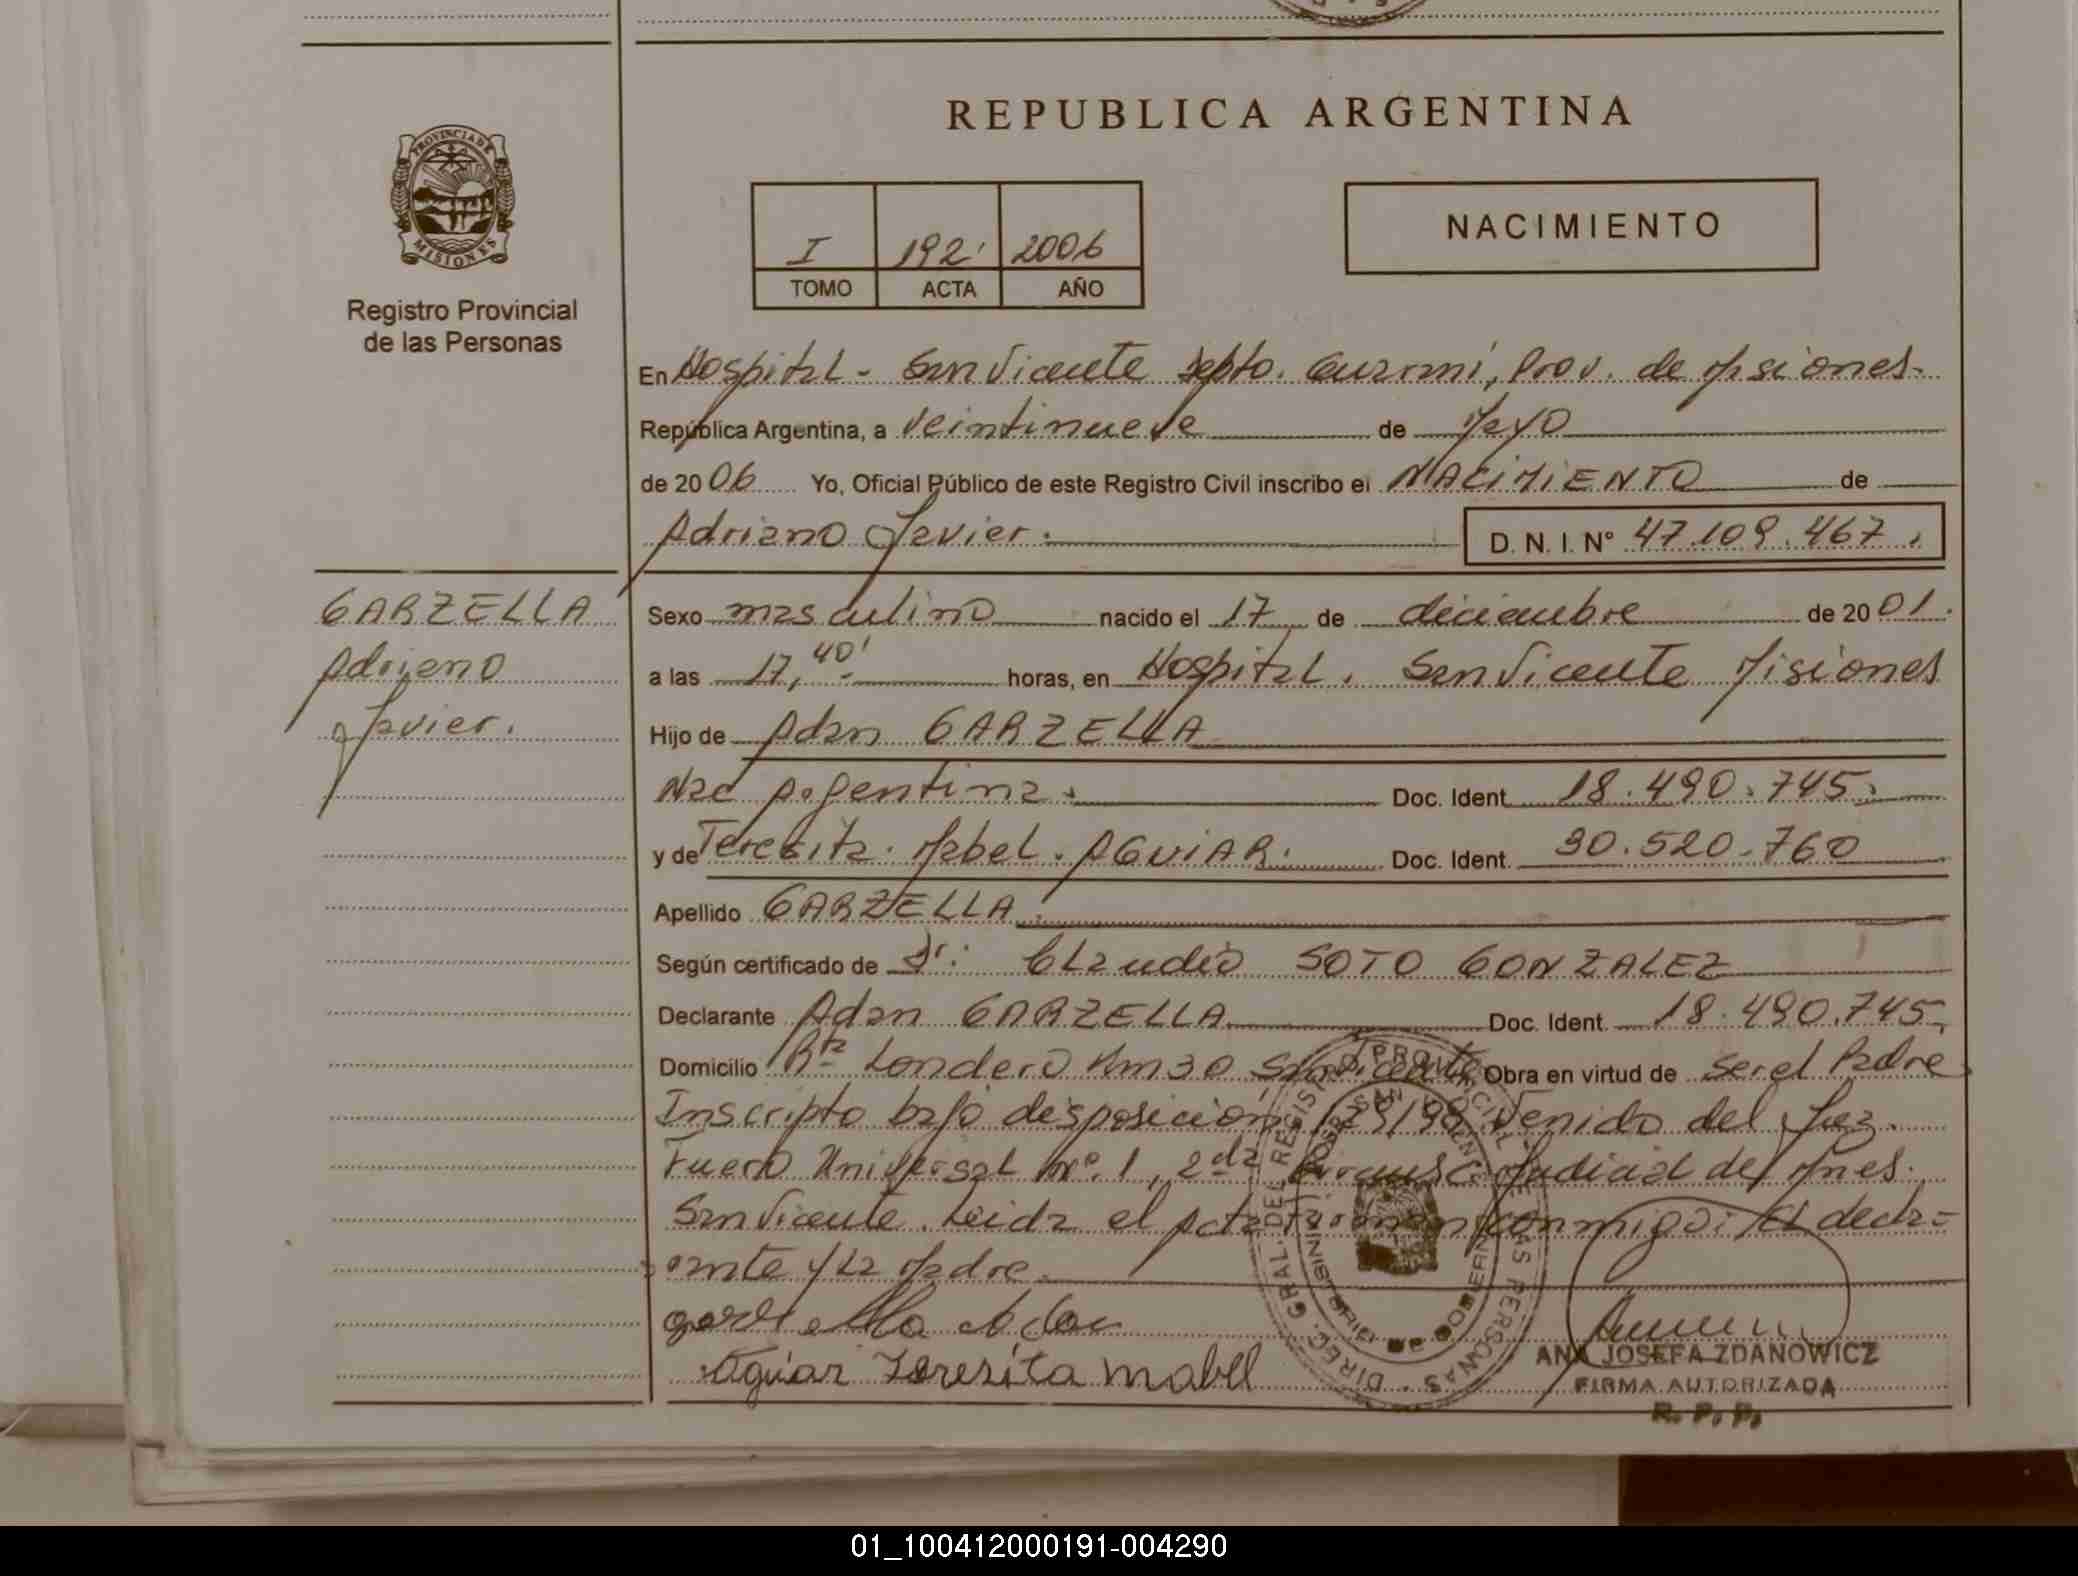 REPUBLICA ARGENTINA
PROVINCIA DE
MISIONES
Registro Provincial
de las Personas
I 192 2006
TOMO ACTA AÑO
NACIMIENTO
En Hospital - San Vicente Depto. Guaraní, Prov. de Msiones-
República Argentina, a veintinueve de Mayo
de 2006 Yo, Oficial Público de este Registro Civil inscribo el NACIMIENTO de
Adriano Javier. D. N. I. N° 47.109.467.
GARZELLA
Adriano
Javier.
Sexo masculino nacido el 17 de diciembre de 2001.
a las 17,40' horas, en Hospital. San Vicente Misiones
Hijo de Adan GARZELLA
Nac Argentina. Doc. Ident. 18.490.745.
y de Teresita Mabel. AGUIAR. Doc. Ident. 30.520.760
Apellido GARZELLA.
Según certificado de Dr. Claudio SOTO GONZALEZ
Declarante Adan GARZELLA Doc. Ident. 18.490.745,
Domicilio Rta Londero Km 30 San Vicente Obra en virtud de ser el Padre
Inscripto bajo desposición 129/98 Venido del Juz.
Fuero Universal Nº. 1, 2da Circunsc. Judicial de Mnes.
San Vicente. Leida el Acta Firman conmigo: El decla=
rante y La Madre.
garzella Adan
Aguiar Teresita Mabel
DIREC. GRAL. DEL REGISTRO PROVINCIAL DE LAS PERSONAS
MINISTERIO DE GOBIERNO
ANA JOSEFA ZDANOWICZ
FIRMA AUTORIZADA
R. P. P.
01_100412000191-004290